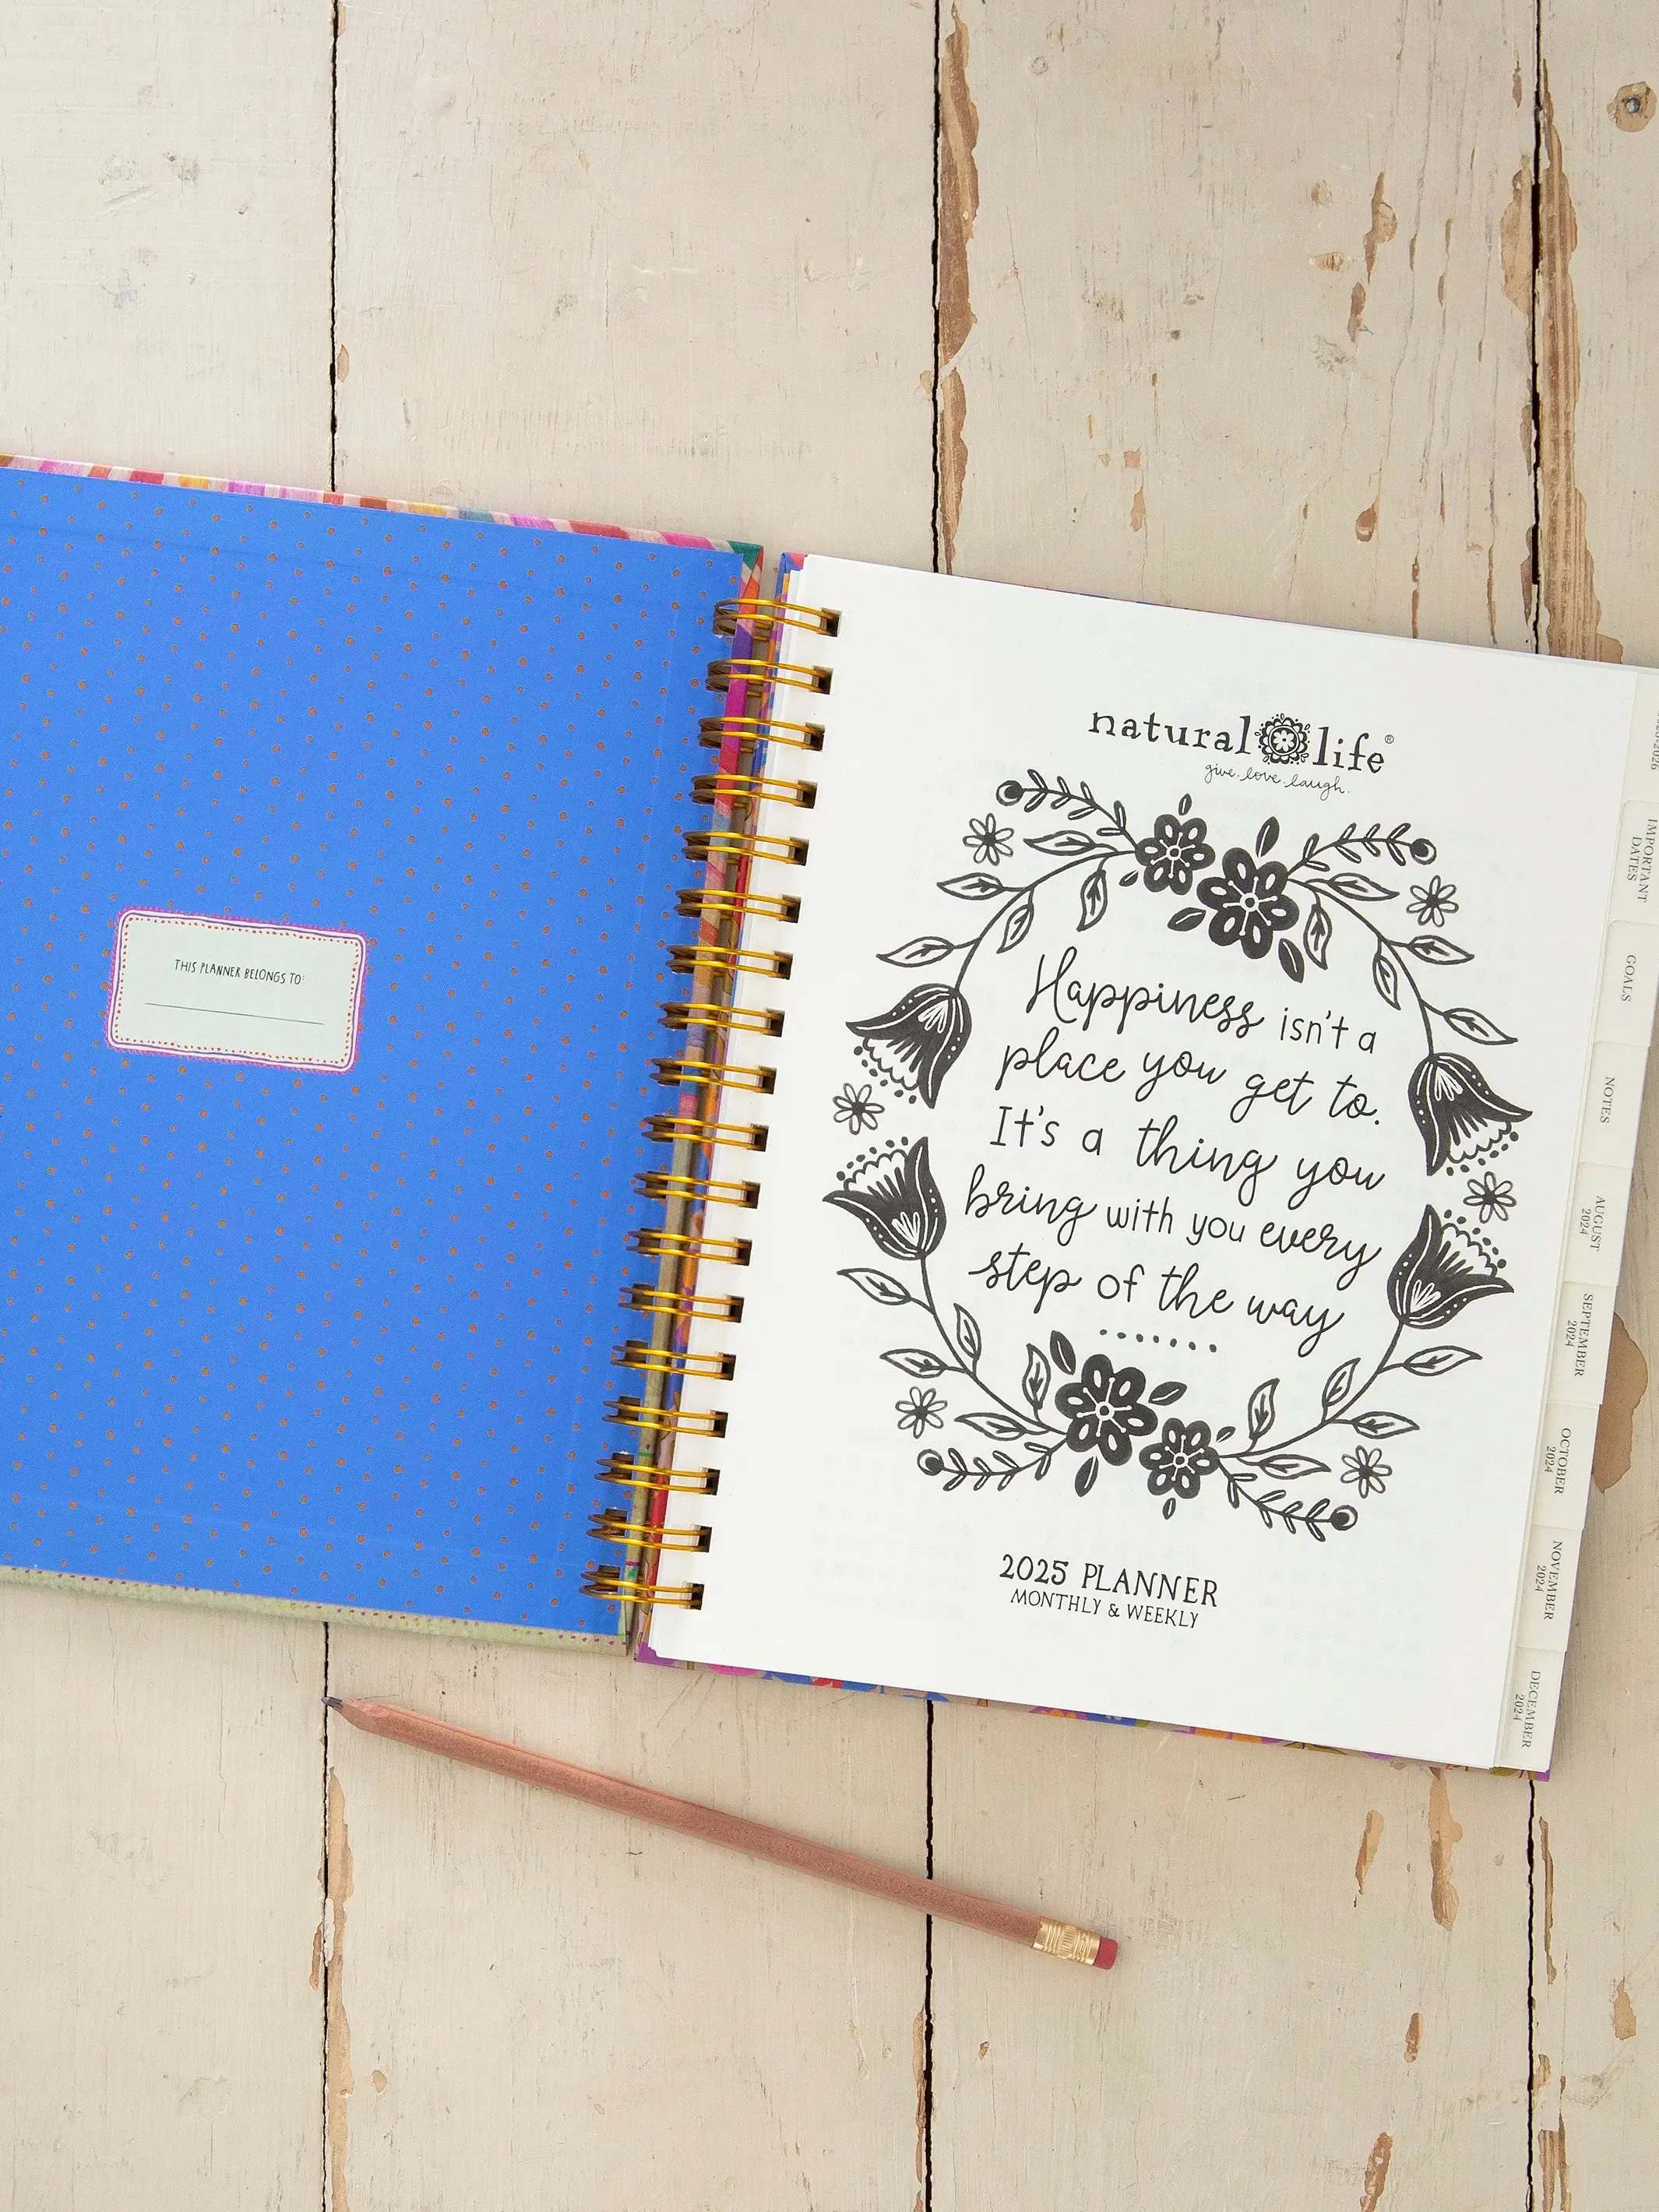 THIS PLANNER BELONGS TO:
natural life®
give.love.laugh.
Happiness isn't a
place you get to.
It's a thing you
bring with you every
step of the way
2025 PLANNER
MONTHLY & WEEKLY
IMPORTANT
DATES
GOALS
NOTES
AUGUST
2024
SEPTEMBER
2024
OCTOBER
2024
NOVEMBER
2024
DECEMBER
2024